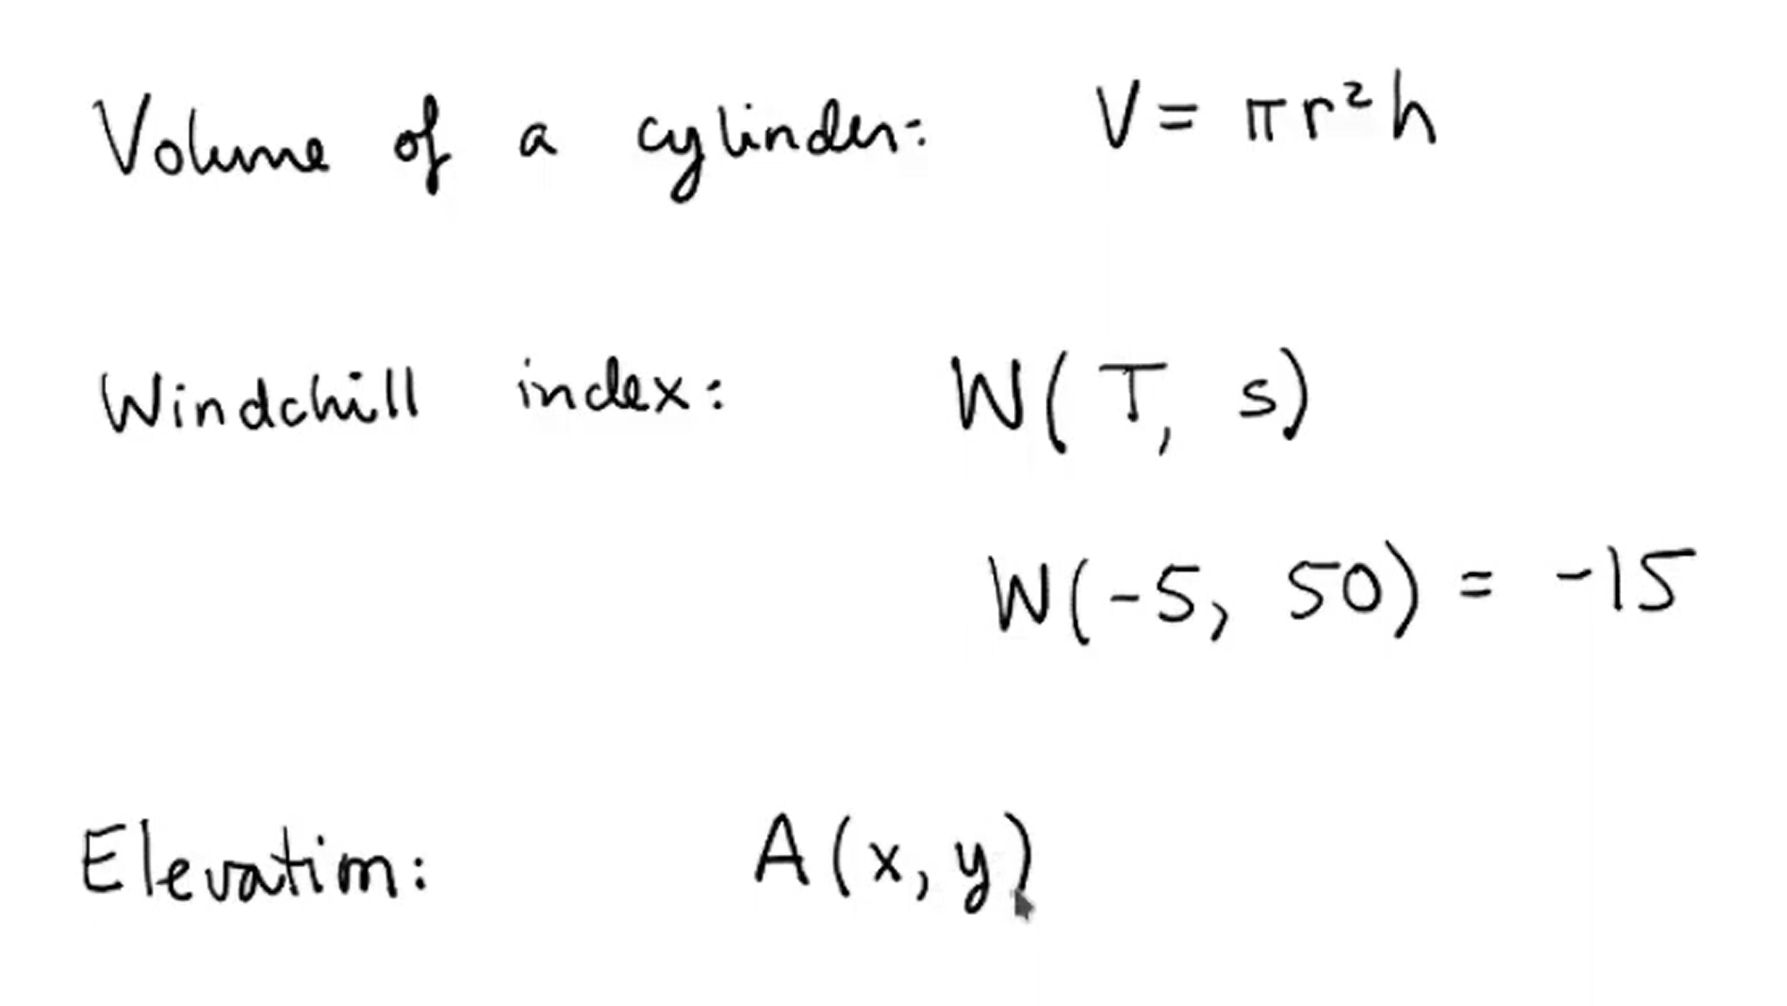 Volume of a cylinder: V = πr²h
Windchill index: W(T, s)
W(-5, 50) = -15
Elevation: A(x, y)